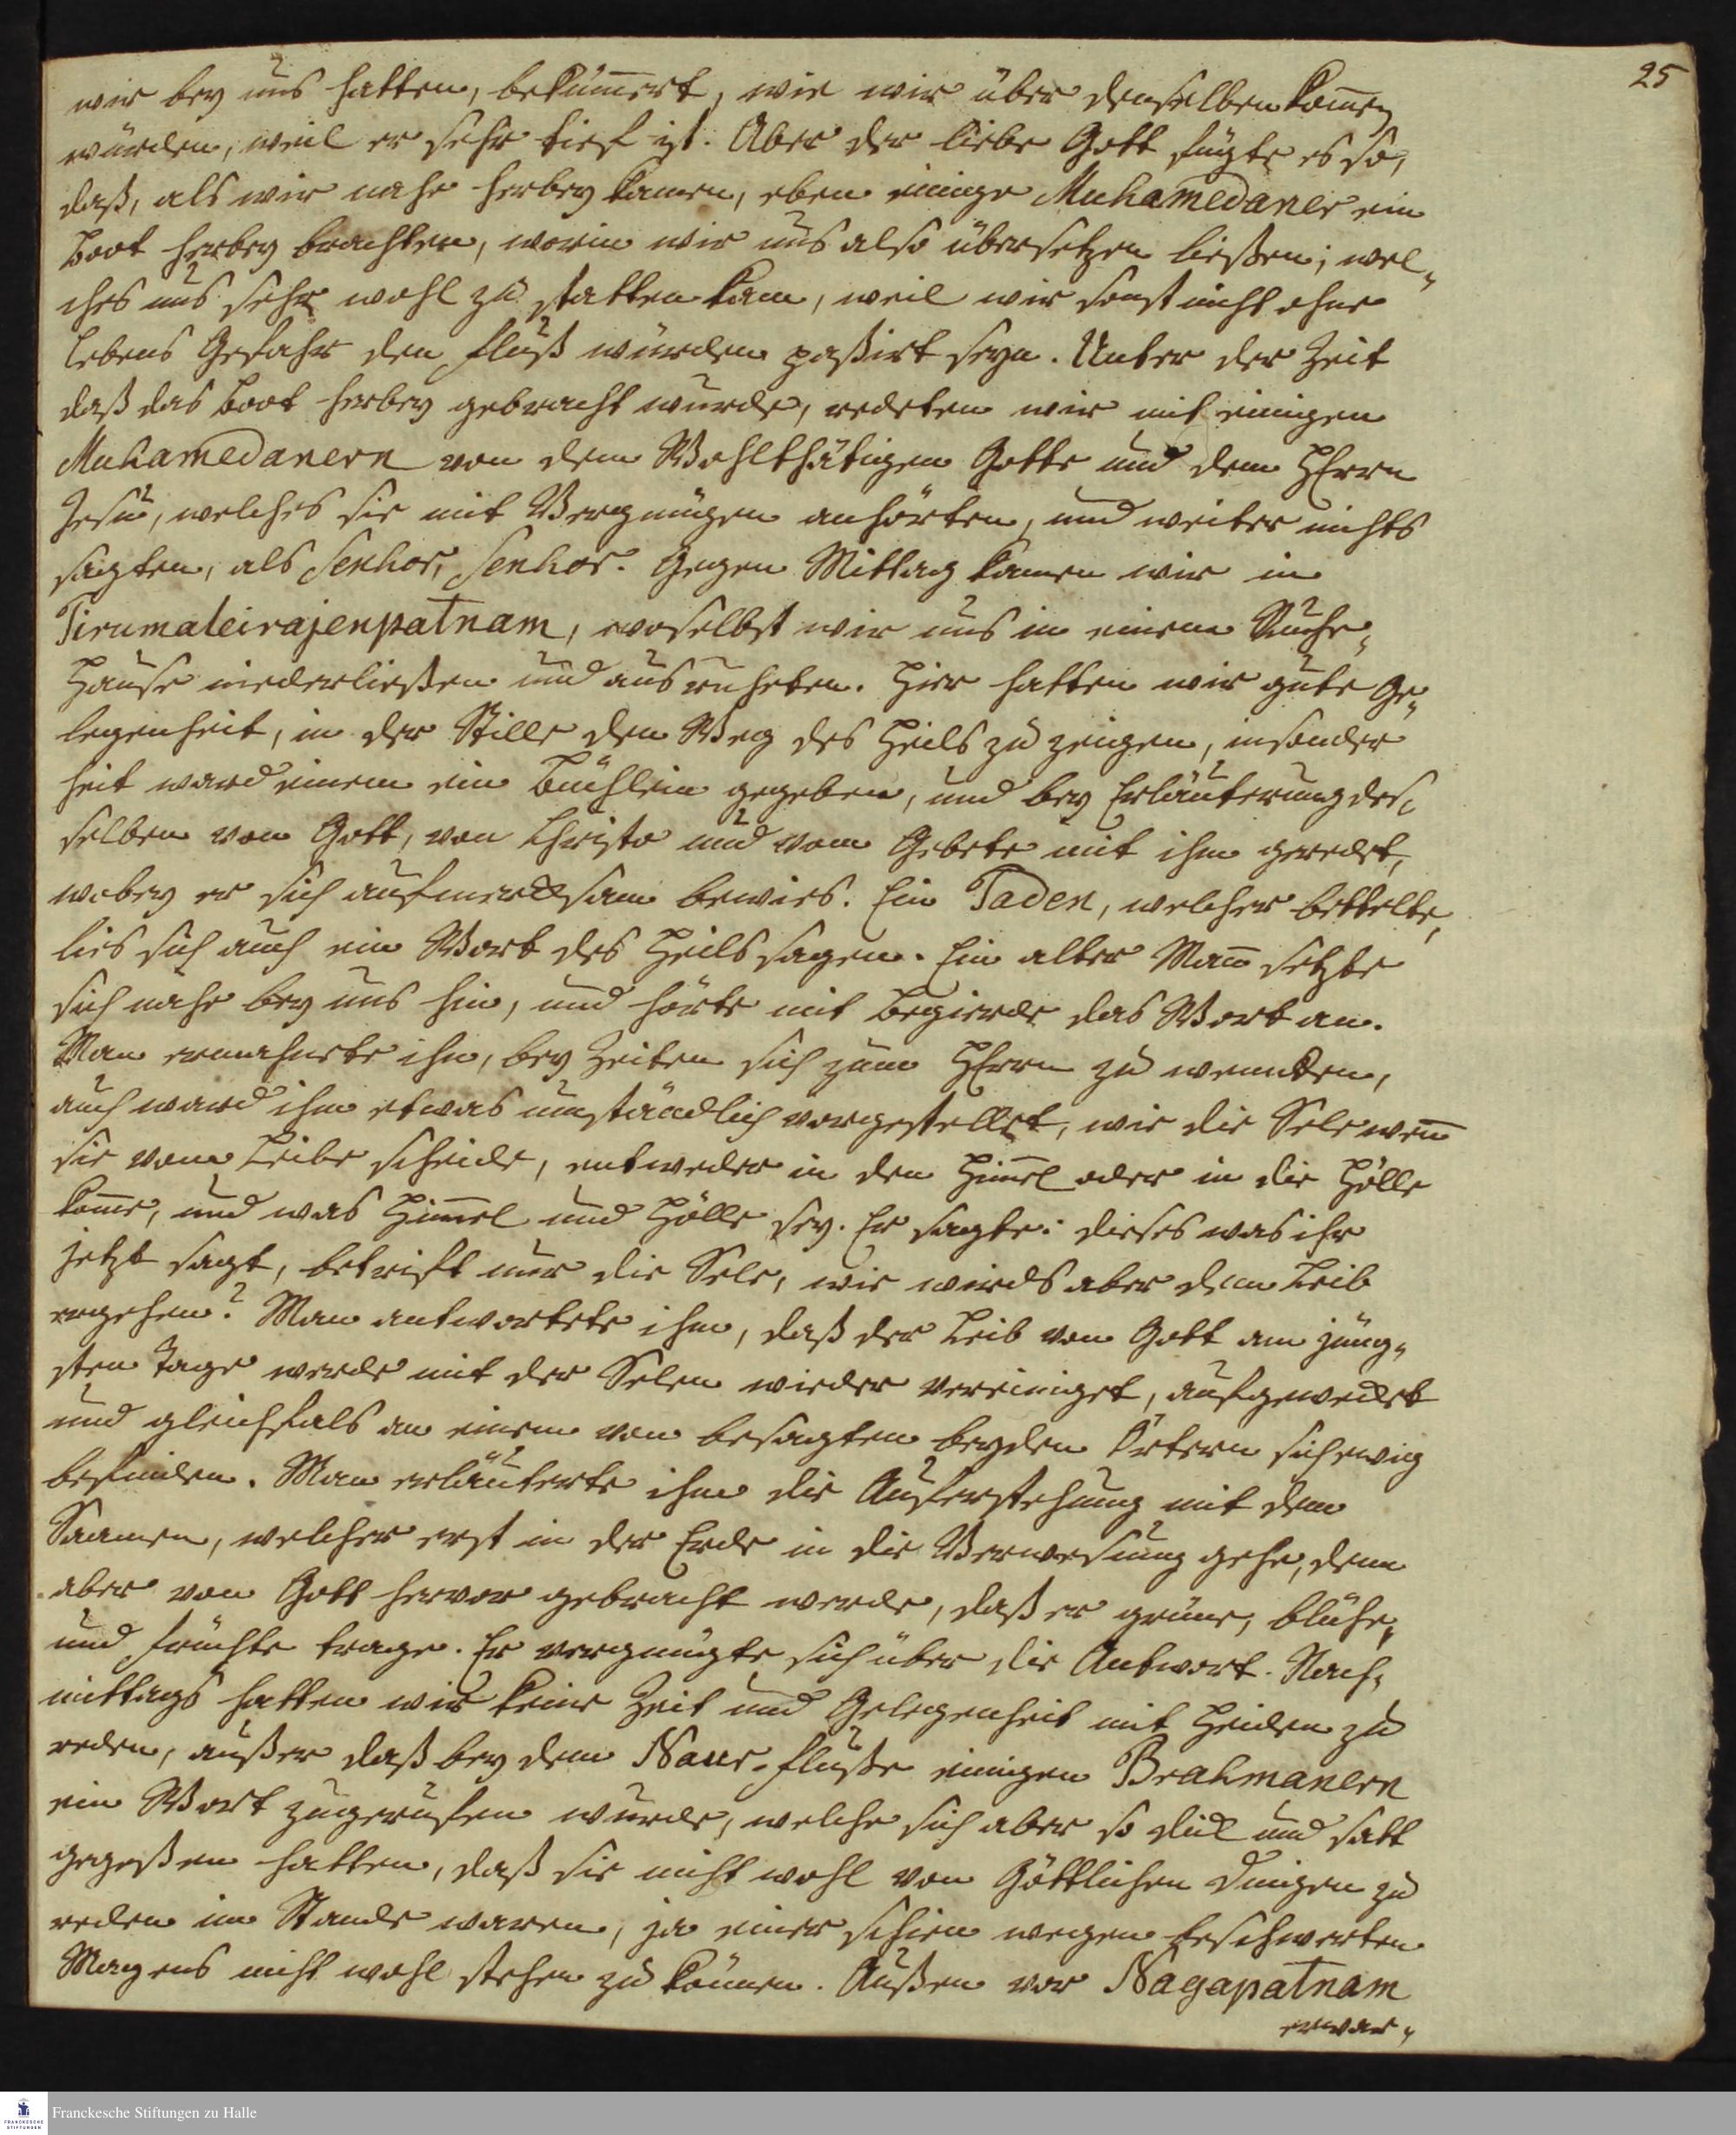 25
wir bey uns hatten, bekümmert, wie wir über denselben kommen
würden, weil er sehr tief ist. Aber der liebe Gott fügte es so,
daß, als wir nahe herbey kamen, eben einige Muhamedaner ein
Boot herbey brachten, worin wir uns also übersetzen ließen; wel„
ches uns sehr wohl zu statten kam, weil wir sonst nicht ohne
Lebens Gefahr den Fluß würden paßirt seyn. Unter der Zeit
daß das Boot herbey gebracht wurde, redeten wir mit einigen
Muhamedanern von dem Wohlthätigen Gotte und dem HErrn
Jesu, welches sie mit Vergnügen anhörten, und weiter nichts
sagten, als Senhor, Senhor. Gegen Mittag kamen wir in
Tirumaleirajenpatnam, woselbst wir uns in einem Ruhe„
Hause niederließen und ausruheten. Hier hatten wir gute Ge„
legenheit, in der Stille den Weg des Heils zu zeigen, insonder
heit ward einem ein Büchlein gegeben, und bey Erläuterung des„
selben von Gott, von Christo und vom Gebete mit ihm geredet,
wobey er sich aufmercksam bewies. Ein Taden, welcher bettelte,
lies sich auch ein Wort des Heils sagen. Ein alter Mann setzte
sich nahe bey uns hin, und hörte mit Begierde das Wort an.
Man ermahnete ihn, bey Zeiten sich zum HErrn zu wenden,
auch ward ihm etwas umständlich vorgestellet, wie die Sele wenn
sie vom Leibe scheide, entweder in den Himmel oder in die Hölle
komme, und was Himmel und Hölle sey. Er sagte: dieses was ihr
jetzt sagt, betrift nur die Sele, wie wirds aber dem Leib
ergehen? Man antwortete ihm, daß der Leib von Gott am jüng„
sten Tage werde mit der Selen wieder vereiniget, aufgewecket
und gleichfals an einem von besagten beyden Örtern sich ewig
befinden. Man erläuterte ihm die Auferstehung mit dem
Saamen, welcher erst in der Erde in die Verwesung gehe, denn
aber von Gott hervor gebracht werde, daß er grüne, blühe,
und Früchte trage. Er vergnügte sich über die Antwort. Nach„
mittags hatten wir keine Zeit und Gelegenheit mit Heiden zu
reden, außer daß bey dem Naur-Fluße einigen Brahmanern
ein Wort zugerufen wurde, welche sich aber so dick und satt
gegeßen hatten, daß sie nicht wohl von Göttlichen Dingen zu
reden im Stande waren, ja einer schien wegen beschwerten
Magens nicht wohl stehen zu können. Außen vor Nagapatnam
erwar„
Franckesche Stiftungen zu Halle
FRANCKESCHE
STIFTUNGEN